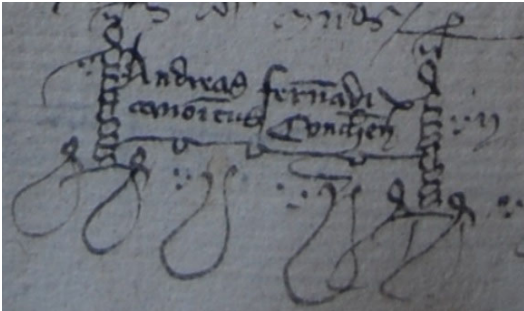 Andreas fern̄adi
canonicus Conchen̄